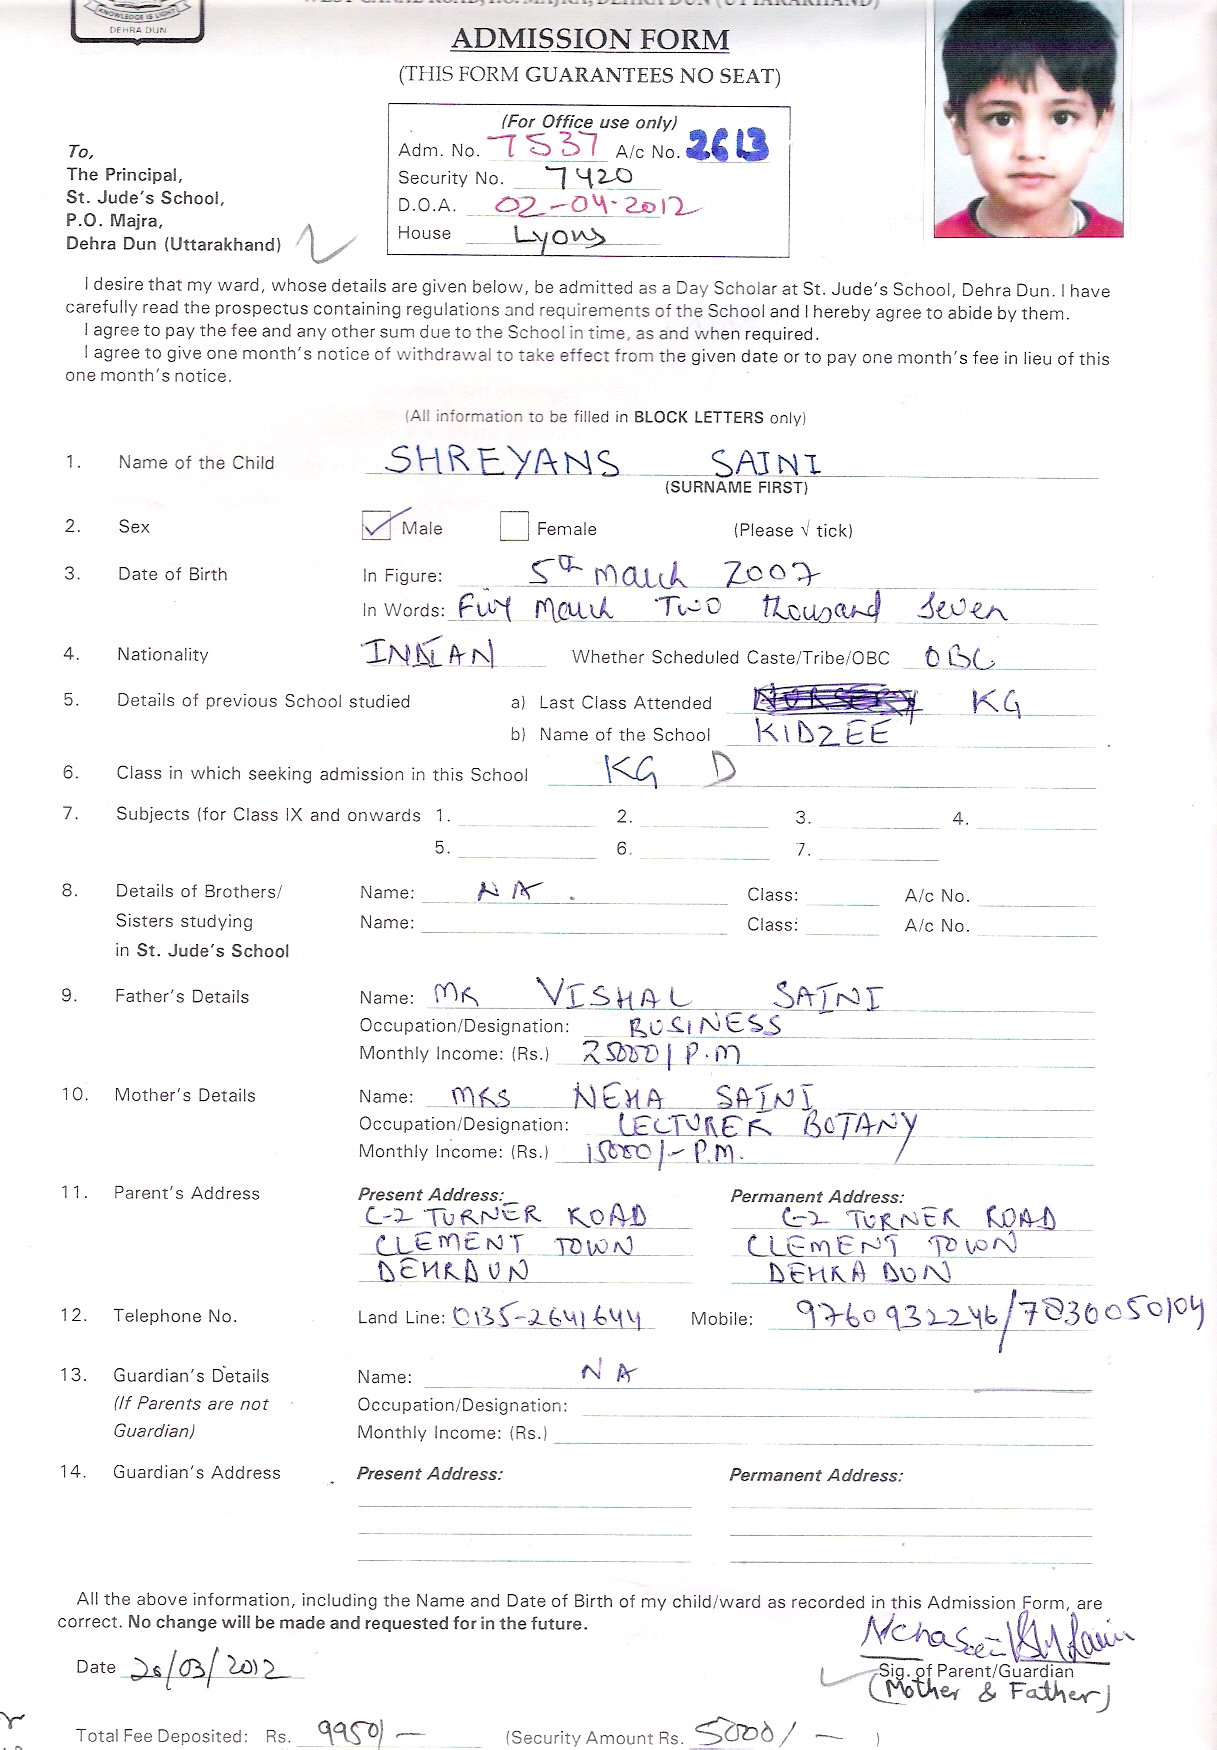 KNOWLEDGE IS LIGHT
DEHRA DUN
WEST CANAL ROAD, P.O. MAJRA, DEHRA DUN (UTTARAKHAND)
ADMISSION FORM
(THIS FORM GUARANTEES NO SEAT)
(For Office use only)
Adm. No. 7537 A/c No. 2613
Security No. 7420
D.O.A. 02-04-2012
House Lyons
To,
The Principal,
St. Jude's School,
P.O. Majra,
Dehra Dun (Uttarakhand)
I desire that my ward, whose details are given below, be admitted as a Day Scholar at St. Jude's School, Dehra Dun. I have
carefully read the prospectus containing regulations and requirements of the School and I hereby agree to abide by them.
I agree to pay the fee and any other sum due to the School in time, as and when required.
I agree to give one month's notice of withdrawal to take effect from the given date or to pay one month's fee in lieu of this
one month's notice.
(All information to be filled in BLOCK LETTERS only)
1. Name of the Child SHREYANS SAINI
(SURNAME FIRST)
2. Sex Male Female (Please √ tick)
3. Date of Birth In Figure: 5th March 2007
In Words: Five March Two thousand Seven
4. Nationality INDIAN Whether Scheduled Caste/Tribe/OBC OBC
5. Details of previous School studied a) Last Class Attended NURSERY KG
b) Name of the School KIDZEE
6. Class in which seeking admission in this School KG D
7. Subjects (for Class IX and onwards 1. 2. 3. 4.
5. 6. 7.
8. Details of Brothers/ Name: NA . Class: A/c No.
Sisters studying Name: Class: A/c No.
in St. Jude's School
9. Father's Details Name: MR VISHAL SAINI
Occupation/Designation: BUSINESS
Monthly Income: (Rs.) 25000/ P.M
10. Mother's Details Name: MRS NEHA SAINI
Occupation/Designation: LECTURER BOTANY
Monthly Income: (Rs.) 15000/- P.M.
11. Parent's Address Present Address: Permanent Address:
C-2 TURNER ROAD C-2 TURNER ROAD
CLEMENT TOWN CLEMENT TOWN
DEHRADUN DEHRA DUN
12. Telephone No. Land Line: 0135-2641644 Mobile: 9760932246/7830050104
13. Guardian's Details Name: NA
(If Parents are not Occupation/Designation:
Guardian) Monthly Income: (Rs.)
14. Guardian's Address Present Address: Permanent Address:
All the above information, including the Name and Date of Birth of my child/ward as recorded in this Admission Form, are
correct. No change will be made and requested for in the future.
Neha Saini
Date 26/03/2012
Sig. of Parent/Guardian
(Mother & Father)
Total Fee Deposited: Rs. 9950/- (Security Amount Rs. 5000/- )